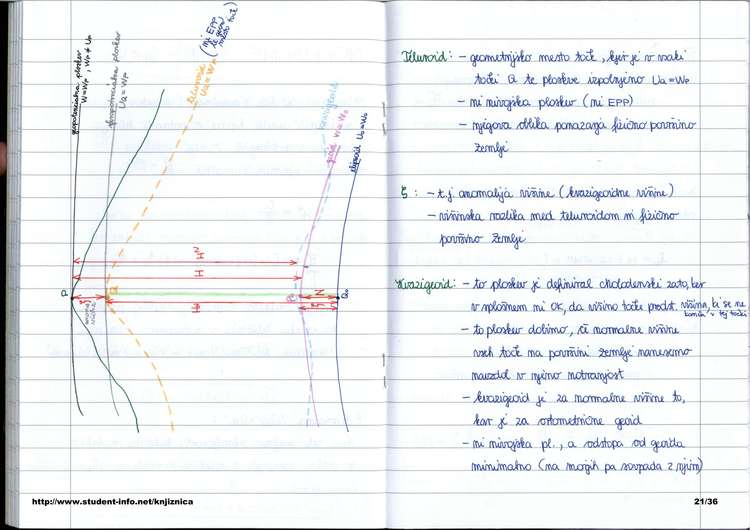 geopotencialna ploskev
W=Wp, Wp ≠ Up
ploskev
U_Q = Wp
teluroid
U_Q = Wp
(ni EPP
le geom.
mesto točk)
kvazigeoid
geoid W=W₀
elipsoid U₀=W₀
P
Q
H
N
Q₀
ζ
Teluroid: - geometrijsko mesto točk, kjer je v vsaki
točki Q te ploskve izpolnjeno U_Q = Wp
- ni nivojska ploskev (ni EPP)
- njegova oblika ponazarja fizično površino
zemlje
ζ: - t.j. anomalija višine (kvazigeoidne višine)
- višinska razlika med teluroidom in fizično
površino Zemlje
Kvazigeoid: - to ploskev je definiral Molodenski zato, ker
v splošnem ni OK, da višino točk predst. višina, ki se ne
konča v tej točki
- to ploskev dobimo, če normalne višine
vseh točk na površini zemlje nanesemo
navzdol v njeno notranjost
- kvazigeoid je za normalne višine to,
kar je za ortometrične geoid
- ni nivojska pl., a odstopa od geoida
minimalno (na morjih pa sovpada z njim)
http://www.student-info.net/knjiznica
21/36